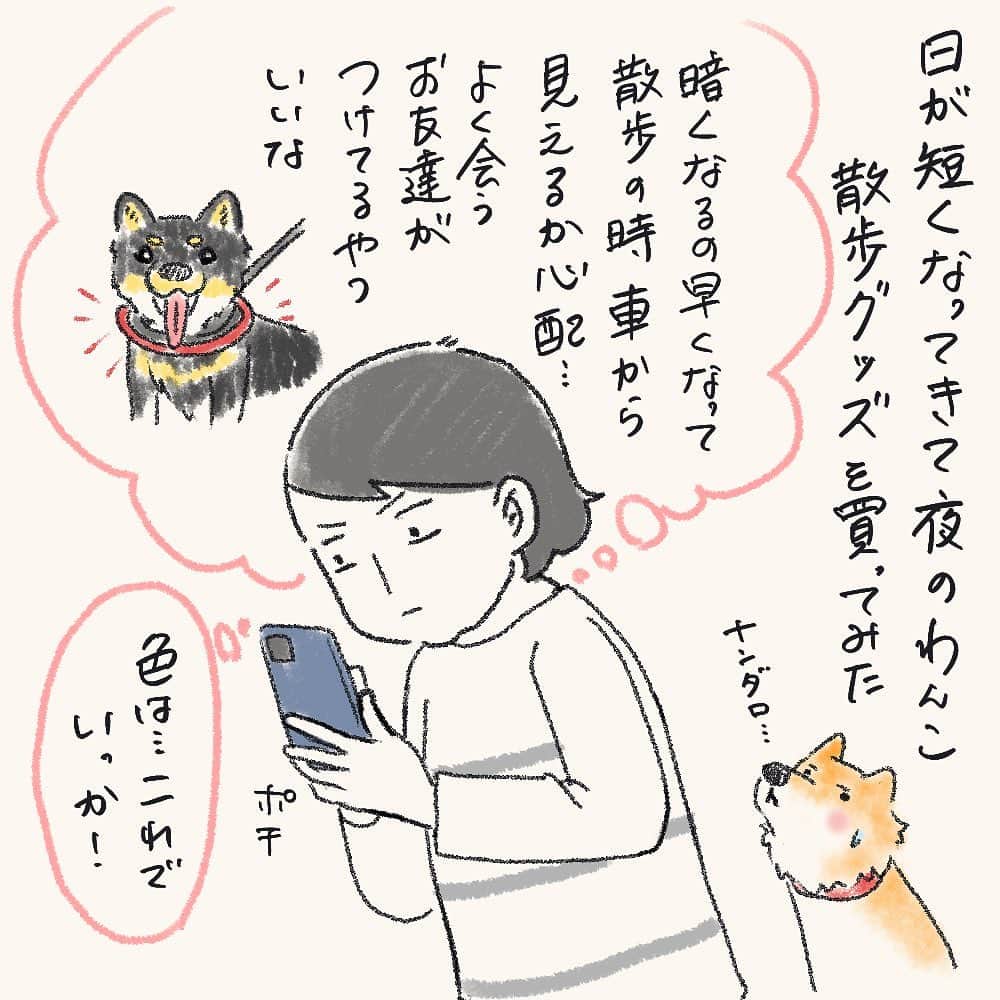 日が短くなってきて夜のわんこ
散歩グッズを買ってみた
暗くなるの早くなって
散歩の時車から
見えるか心配…
よく会う
お友達が
つけてるやつ
いいな
ナンダロ…
ポチ
色は…これで
いっか！